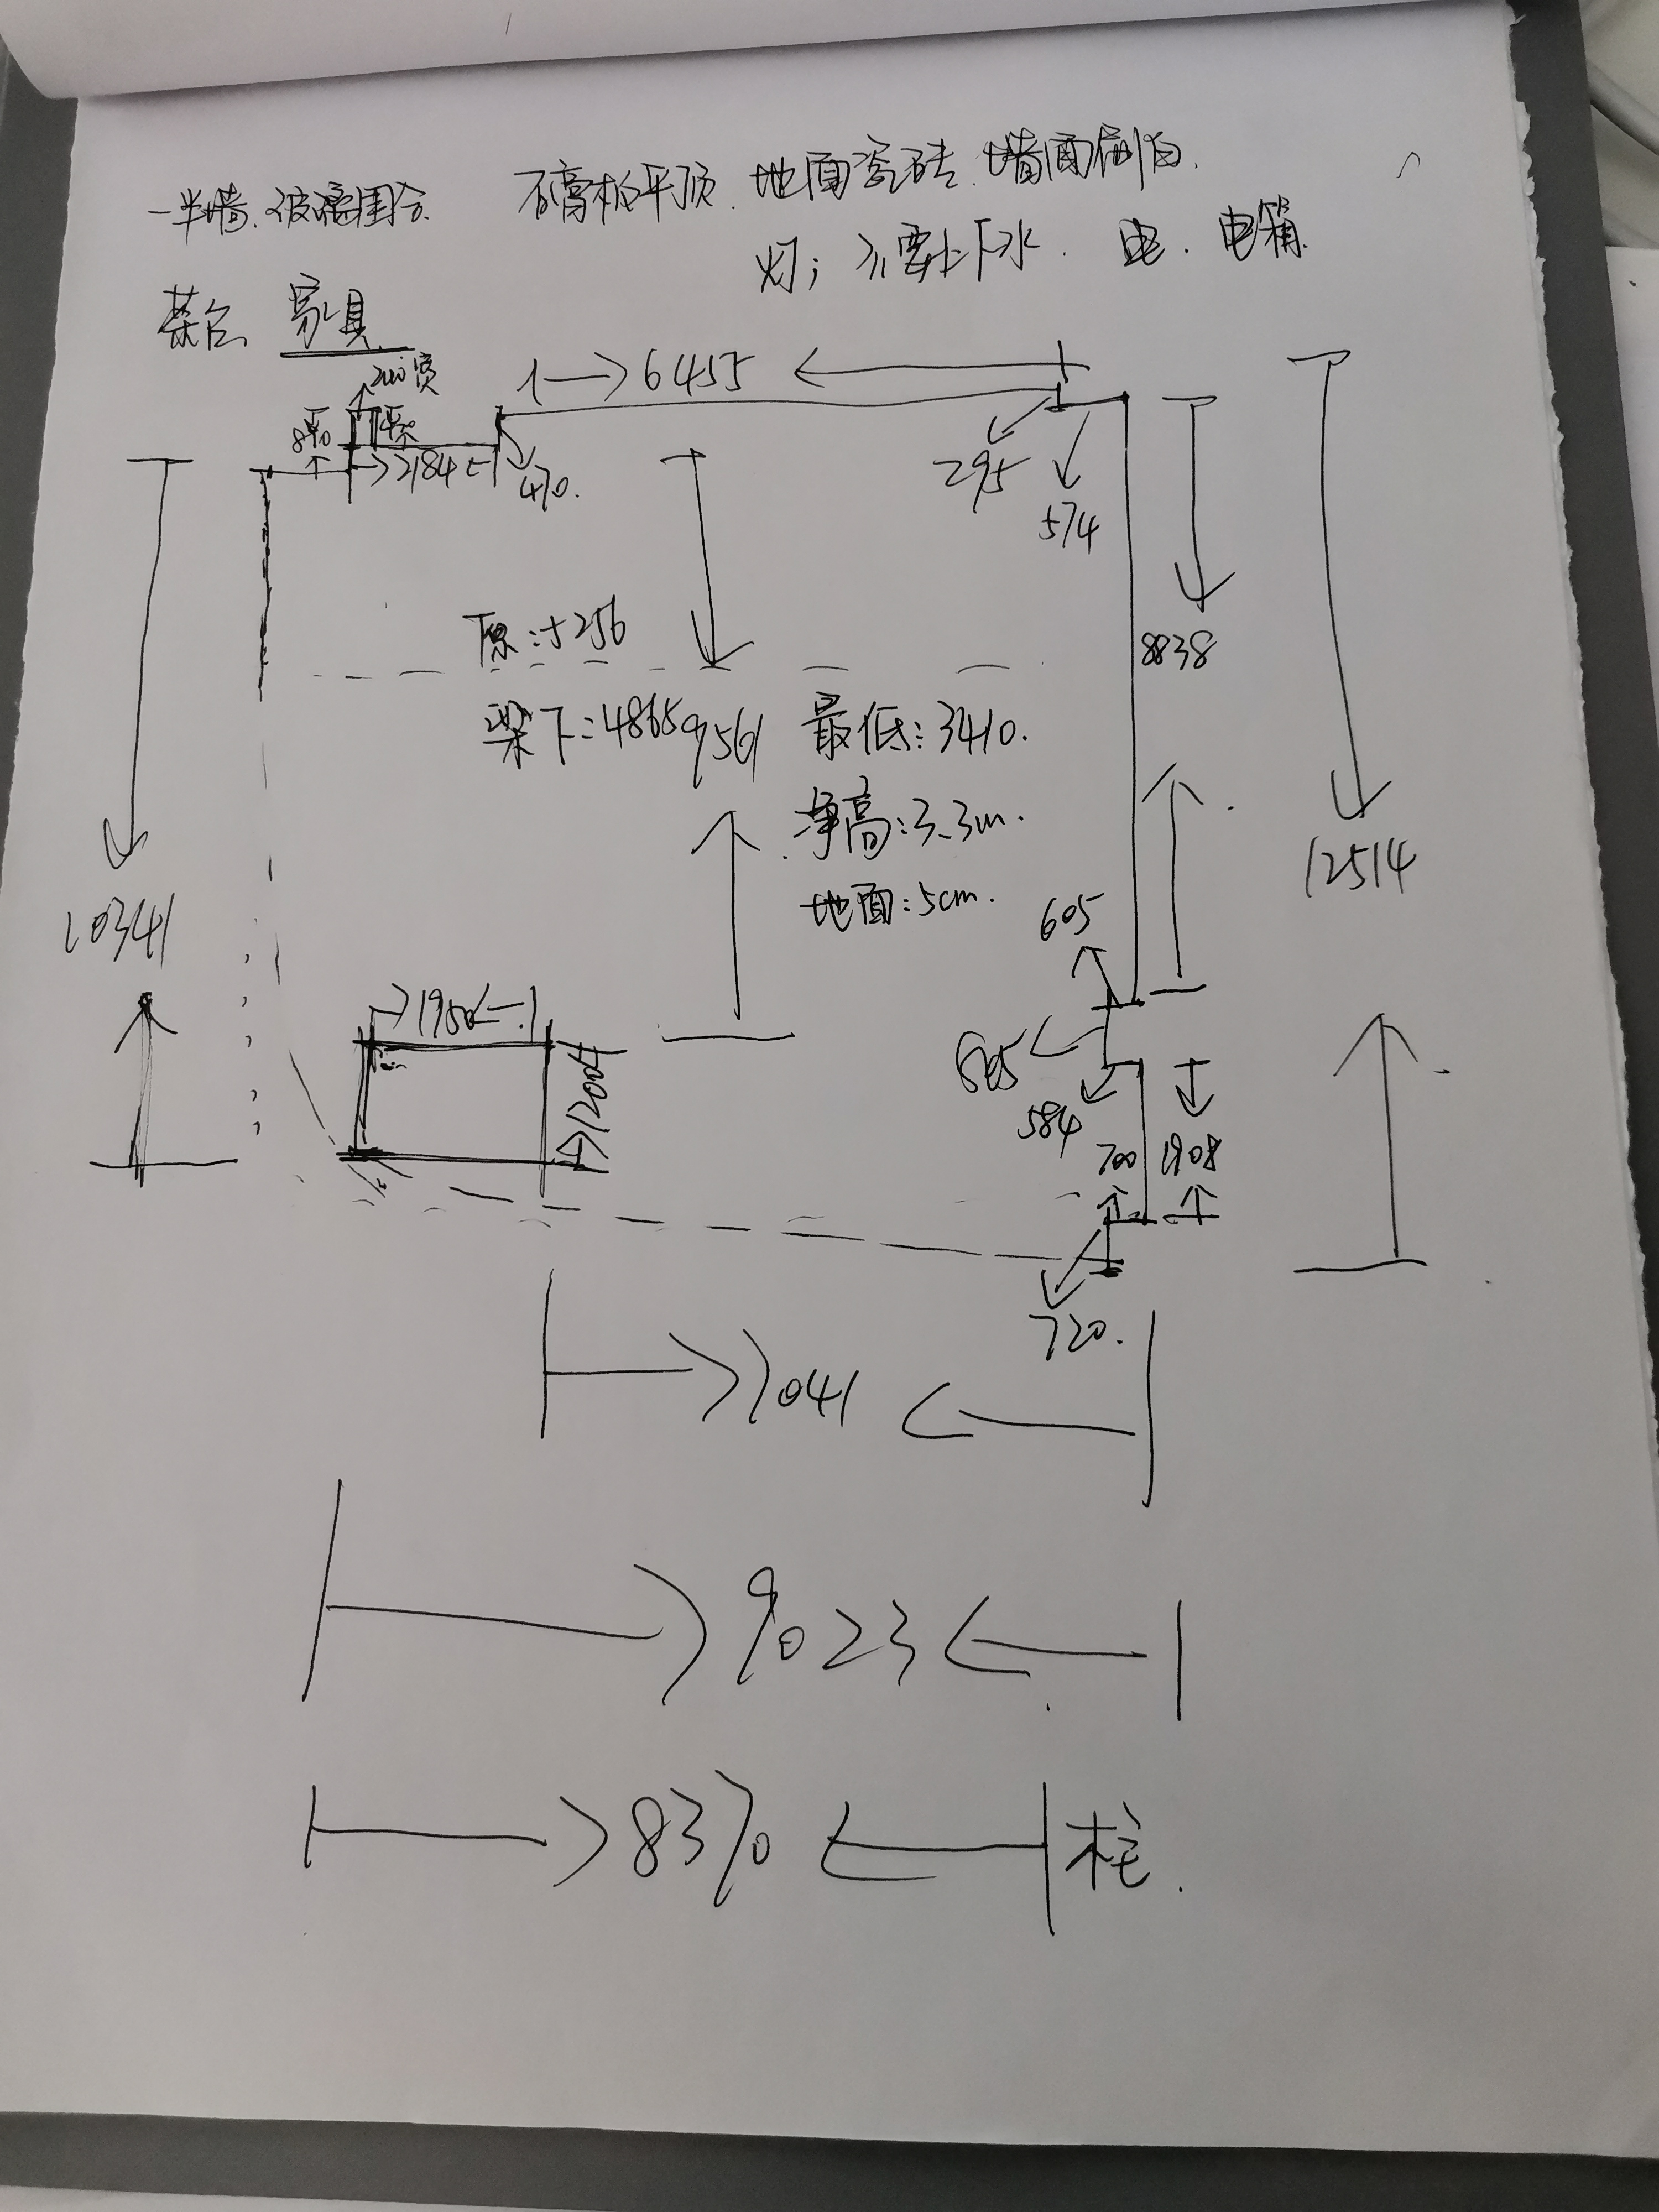 一半墙、玻璃围合. 石膏板平顶. 地面瓷砖. 墙面刷白.
灯; 不要上下水. 电. 电箱.
茶台、家具
6455
2184
470.
295
574
8838
12514
10341
原:5256
梁下:4865
9561
最低:3410.
净高:3.3m.
地面:5cm.
605
1950
1200
605
584
700
1908
720.
7041
9023
8370
柱.